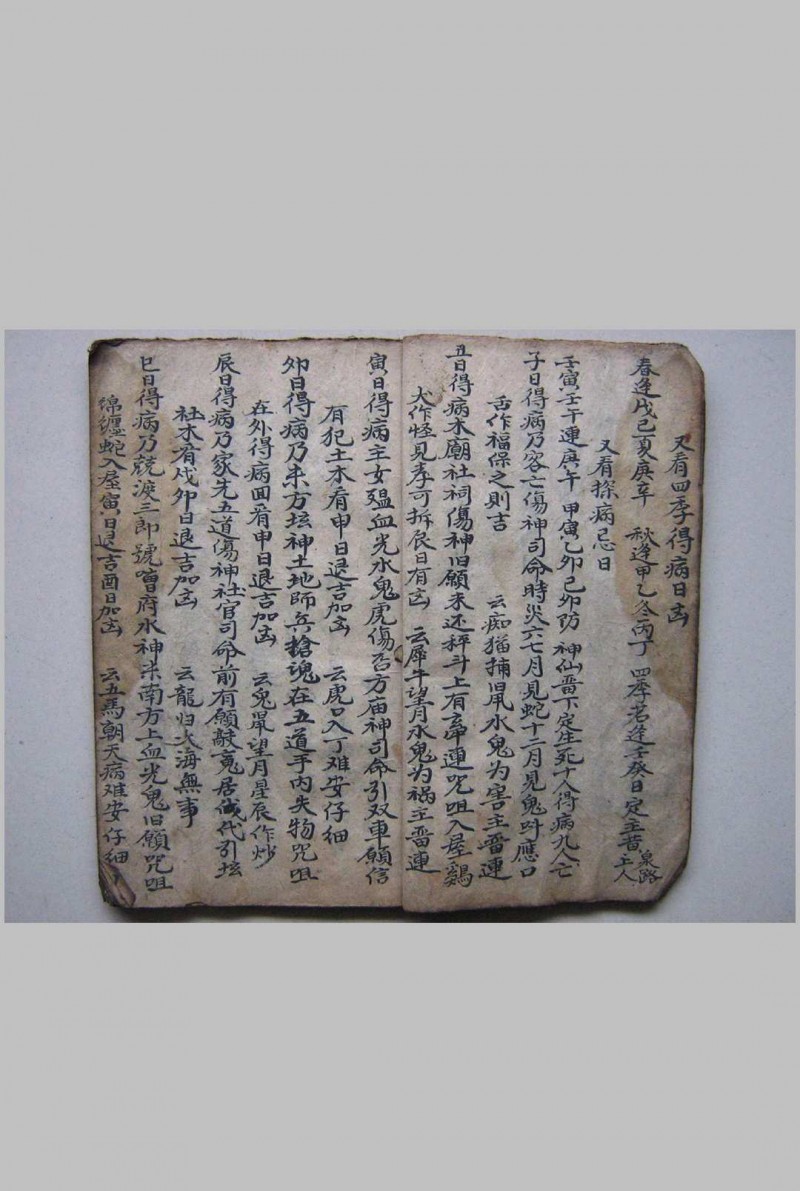 又看四季得病日凶
春逢戊己夏庚辛 秋逢甲乙冬丙丁 四季若逢壬癸日 定主黄泉路上人
又看探病忌日
壬寅壬午連庚午 甲寅乙卯己卯防 神仙留下定生死 十人得病九人亡
子日得病乃客亡傷神司命時災六七月見蛇十二月見鬼叫應口
舌作福保之則吉 云痴猫捕旧鼠水鬼为害主留連
丑日得病木廟社祠傷神旧願未还秤斗上有 連咒咀入屋鷄
犬作怪見孝可拆辰日有凶 云犀牛望月水鬼为祸主留連
寅日得病主女 血光水鬼虎傷 方庙神司命引双車願信
有犯土木看申日退吉加凶 云虎口入丁难安仔細
卯日得病乃未方坛神土地師兵搶魂在五道手内失物咒咀
在外得病回看申日退吉加凶 云兔鼠望月星辰作炒
辰日得病乃家先五道傷神社官司命前有願 竟居 代引坛
社木看戌卯日退吉加凶 云龍归大海無事
巳日得病乃競渡三郎號 府水神 南方上血光鬼旧願咒咀
綿纏蛇入屋寅日退吉酉日加凶 云五馬朝天病难安仔細